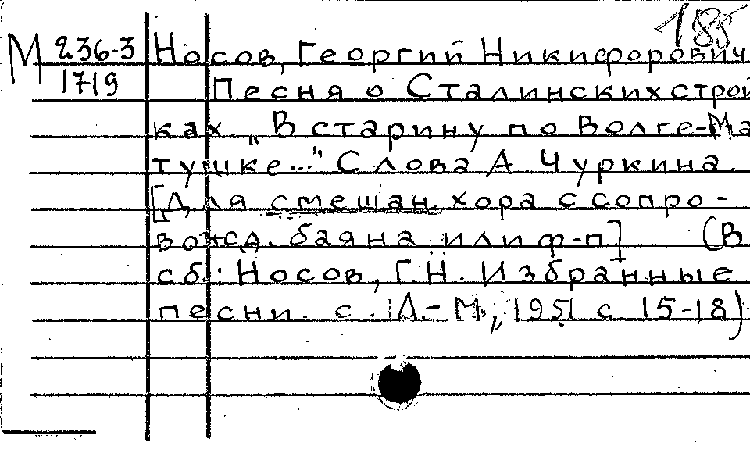 185
М 236-3 Носов, Георгий Никифорович
1719 Песня о Сталинских строй
ках „В старину по Волге-Ма
тушке..." Слова А Чуркина.
[Для смешан. хора с сопро-
вожд. баяна или ф-п] (В
сб: Носов, Г.Н. Избранные
песни. с. Л-М, 1951 с 15-18)